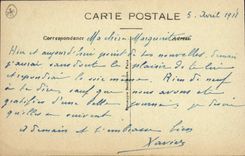 CARTE POSTALE 5. Avril 1918
Correspondance Ma chère Marguerite
Hier et aujourd'hui point de tes nouvelles, demain
j'aurai sans doute le plaisir de te lire
et répondrai le soir même. Rien de neuf
à te dire sauf que nous avons été
gratifiés d'une belle journée, je désire
qu'elles se suivent
à demain et t'embrasse bien
Xavier